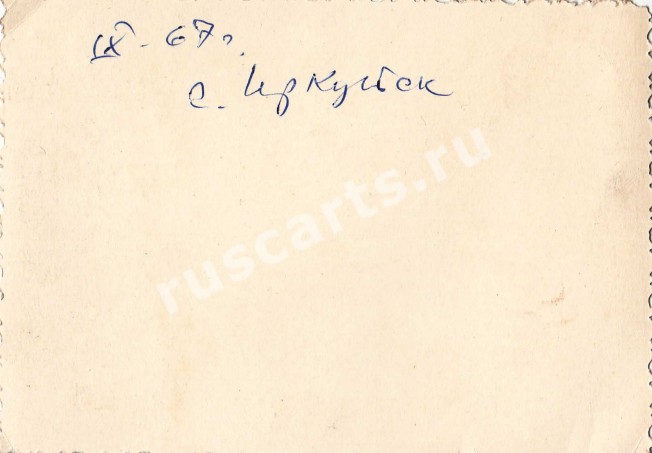 IX - 67 г.
г. Иркутск
ruscarts.ru